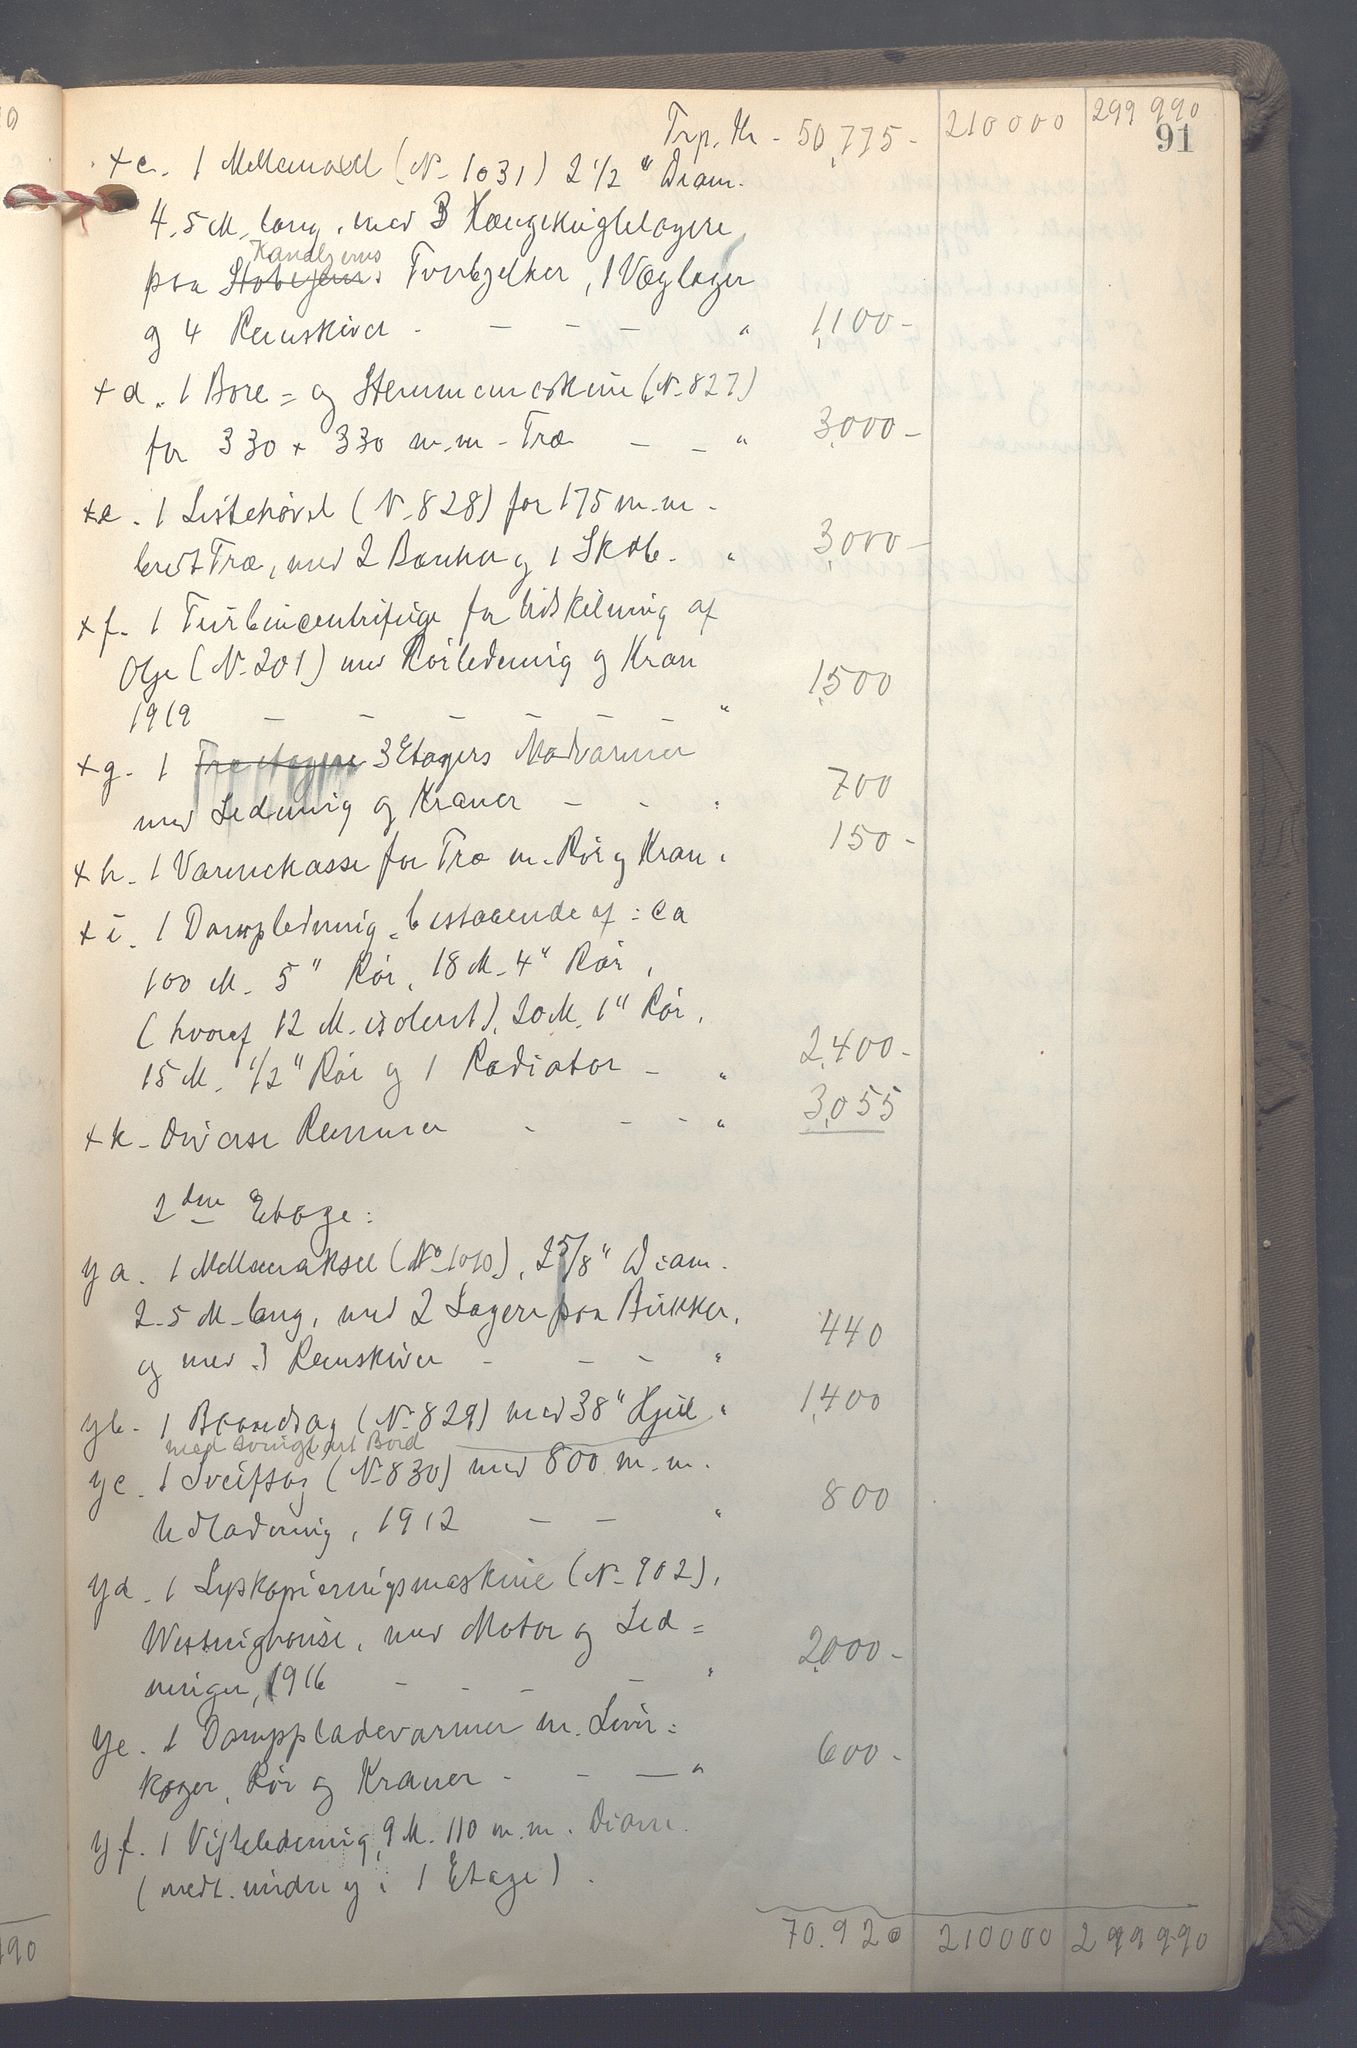 Trp. Kr - 50,775 - 210000 299 990
91
xc. 1 Mellemaxel (N- 1031) 2 1/2" Diam.
4,5 M. lang, med 3 Hængekuglelagere
Kanaljerns
paa Stobejerns Tverbjelker, 1 Væglager
og 4 Remskiver - - - - " 1,100 -
xd. 1 Bore= og Stemmemaskine (N- 827)
for 330 x 330 m.m - Træ - - " 3,000 -
xe. 1 Listehøvel (N- 828) for 175 m.m -
bredt Træ, med 2 Bænker og 1 Skab. " 3,000 -
xf. 1 Turbincentrifuge for Udskilning af
Olje (N- 201) med Rørledning og Kran
1919 - - - - - - " 1,500
xg. 1 Træetagers 3 Etagers Madvarmer
med Ledning og Kraner - - " 700
xh. 1 Varmekasse for Træ m. Rør og Kran " 150 -
xi. 1 Dampledning, bestaaende af: ca
100 M. 5" Rør, 18 M. 4" Rør,
(hvoraf 12 M. isolert), 20 M. 1" Rør,
15 M. 1/2" Rør og 1 Radiator - " 2,400 -
xk - Diverse Remmer - - - " 3,055
2den Etage:
ya. 1 Mellemaksel (No 1010), 2 5/8" Diam.
2.5 M lang, med 2 Lagere paa Bukker,
og med 3 Remskiver - - - " 440
yb. 1 Baandsag (N- 829) med 38" Hjul " 1,400
med svingbart Bord
yc. 1 Sveifsag (N- 830) med 800 m.m.
Udladning, 1912 - - " 800
yd. 1 Lyskopieringsmaskine (N- 902),
Westinghouse, med Motor og Led=
ninger, 1916 - - - - " 2,000 -
ye. 1 Dampladevarmer m. Lim=
koger, Rør og Kraner - - - " 600 -
yf. 1 Vifteledning, 9 M. 110 m.m. Diam.
(medt. under y i 1 Etage).
70.920 210000 299 990